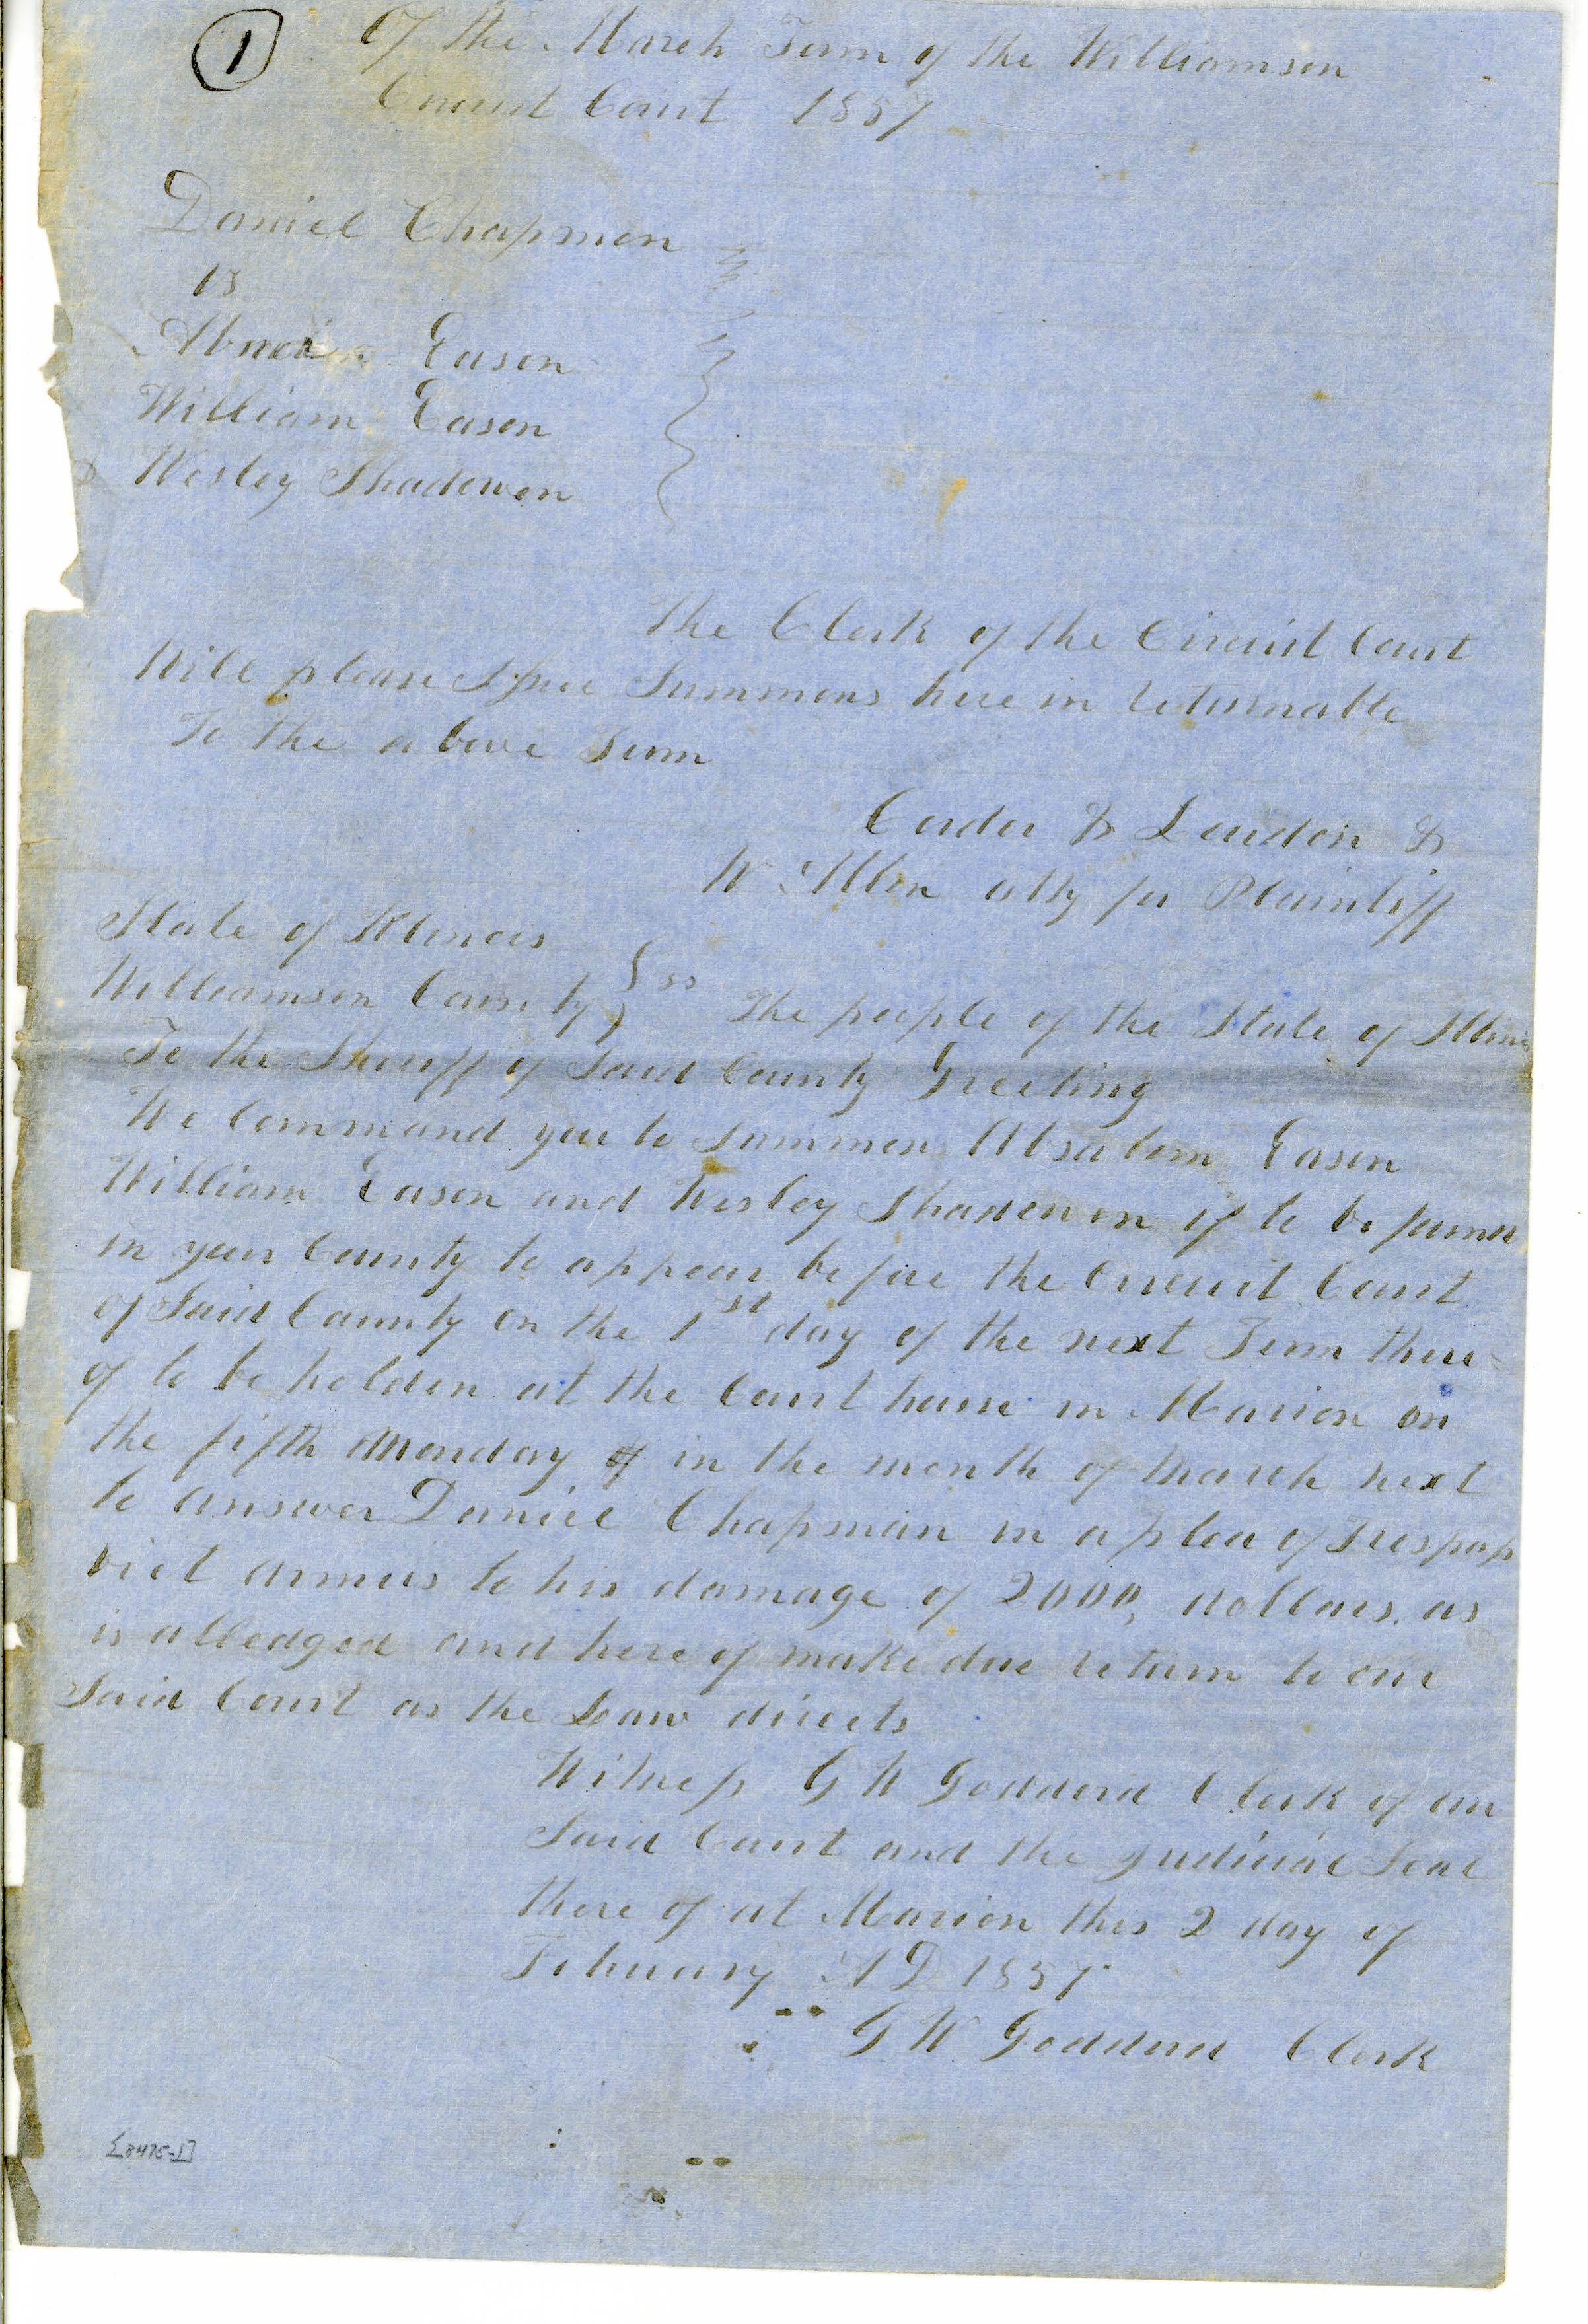 1
Of the March Term of the Williamson
Circuit Court 1857
Daniel Chapman
vs
Eason
William Eason
& Wesley Shadowen
The Clerk of the Circuit Court
Will please Issue Summons here in returnable
To the above Term
Corder & Loudon &
W Allen atty for Plaintiff
State of Illinois
Williamson County } ss The people of the State of Illinois
To the Sheriff of Said County Greeting
We Command you to Summon Absalom Eason
William Eason and Wesley Shadowen if to be found
in your County to appear before the Circuit Court
of Said County on the 1st day of the next Term there-
of to be holden at the Court house in Marion on
the fifth Monday of in the month of March next
to answer Daniel Chapman in a plea of Trespass
viet armis to his damage of 2000, dollars, as
is alledged and here of make due return to our
Said Court as the Law directs
Witness G W Goddard Clerk of our
Said Court and the Judicial Seal
there of at Marion this 2 day of
February A D 1857
G W Goddard Clerk
[8475-1]